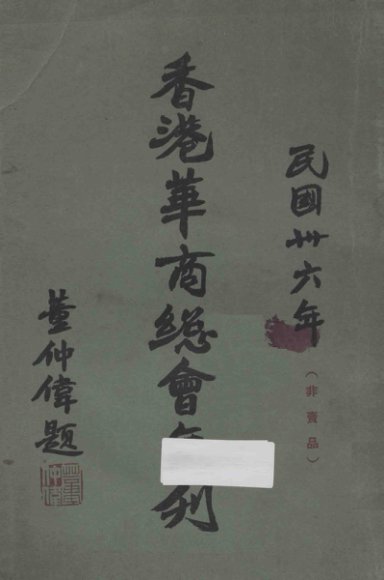 民國卅六年
（非賣品）
香港華商總會年刊
董仲偉題